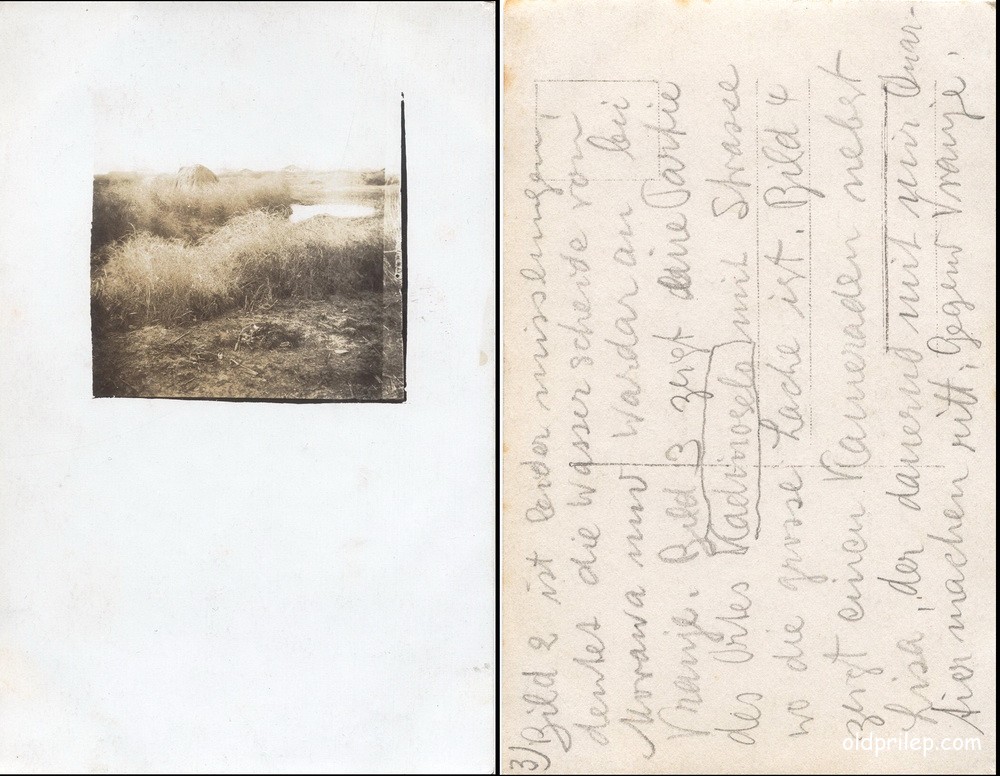 3/ Bild 2 ist leider misslungen,
deutet die Wasserscheide vom
Morawa und Wardar an bei
Vranje. Bild 3 zeigt eine Partie
des Ortes Kadinoselo mit Strasse
wo die grosse Lache ist. Bild 4
zeigt einen Kameraden nebst
Lisa, der dauernd mit mir Quar-
tier machen ritt, Gegend Vranje.
oldprilep.com